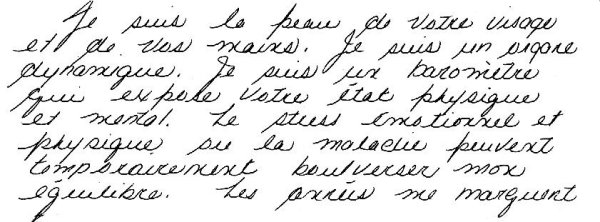 Je suis la peau de votre visage
et de vos mains. Je suis un organe
dynamique. Je suis un baromètre
qui expose votre état physique
et mental. Le stress émotionnel et
physique ou la maladie peuvent
temporairement boulverser mon
équilibre. Les années me marquent